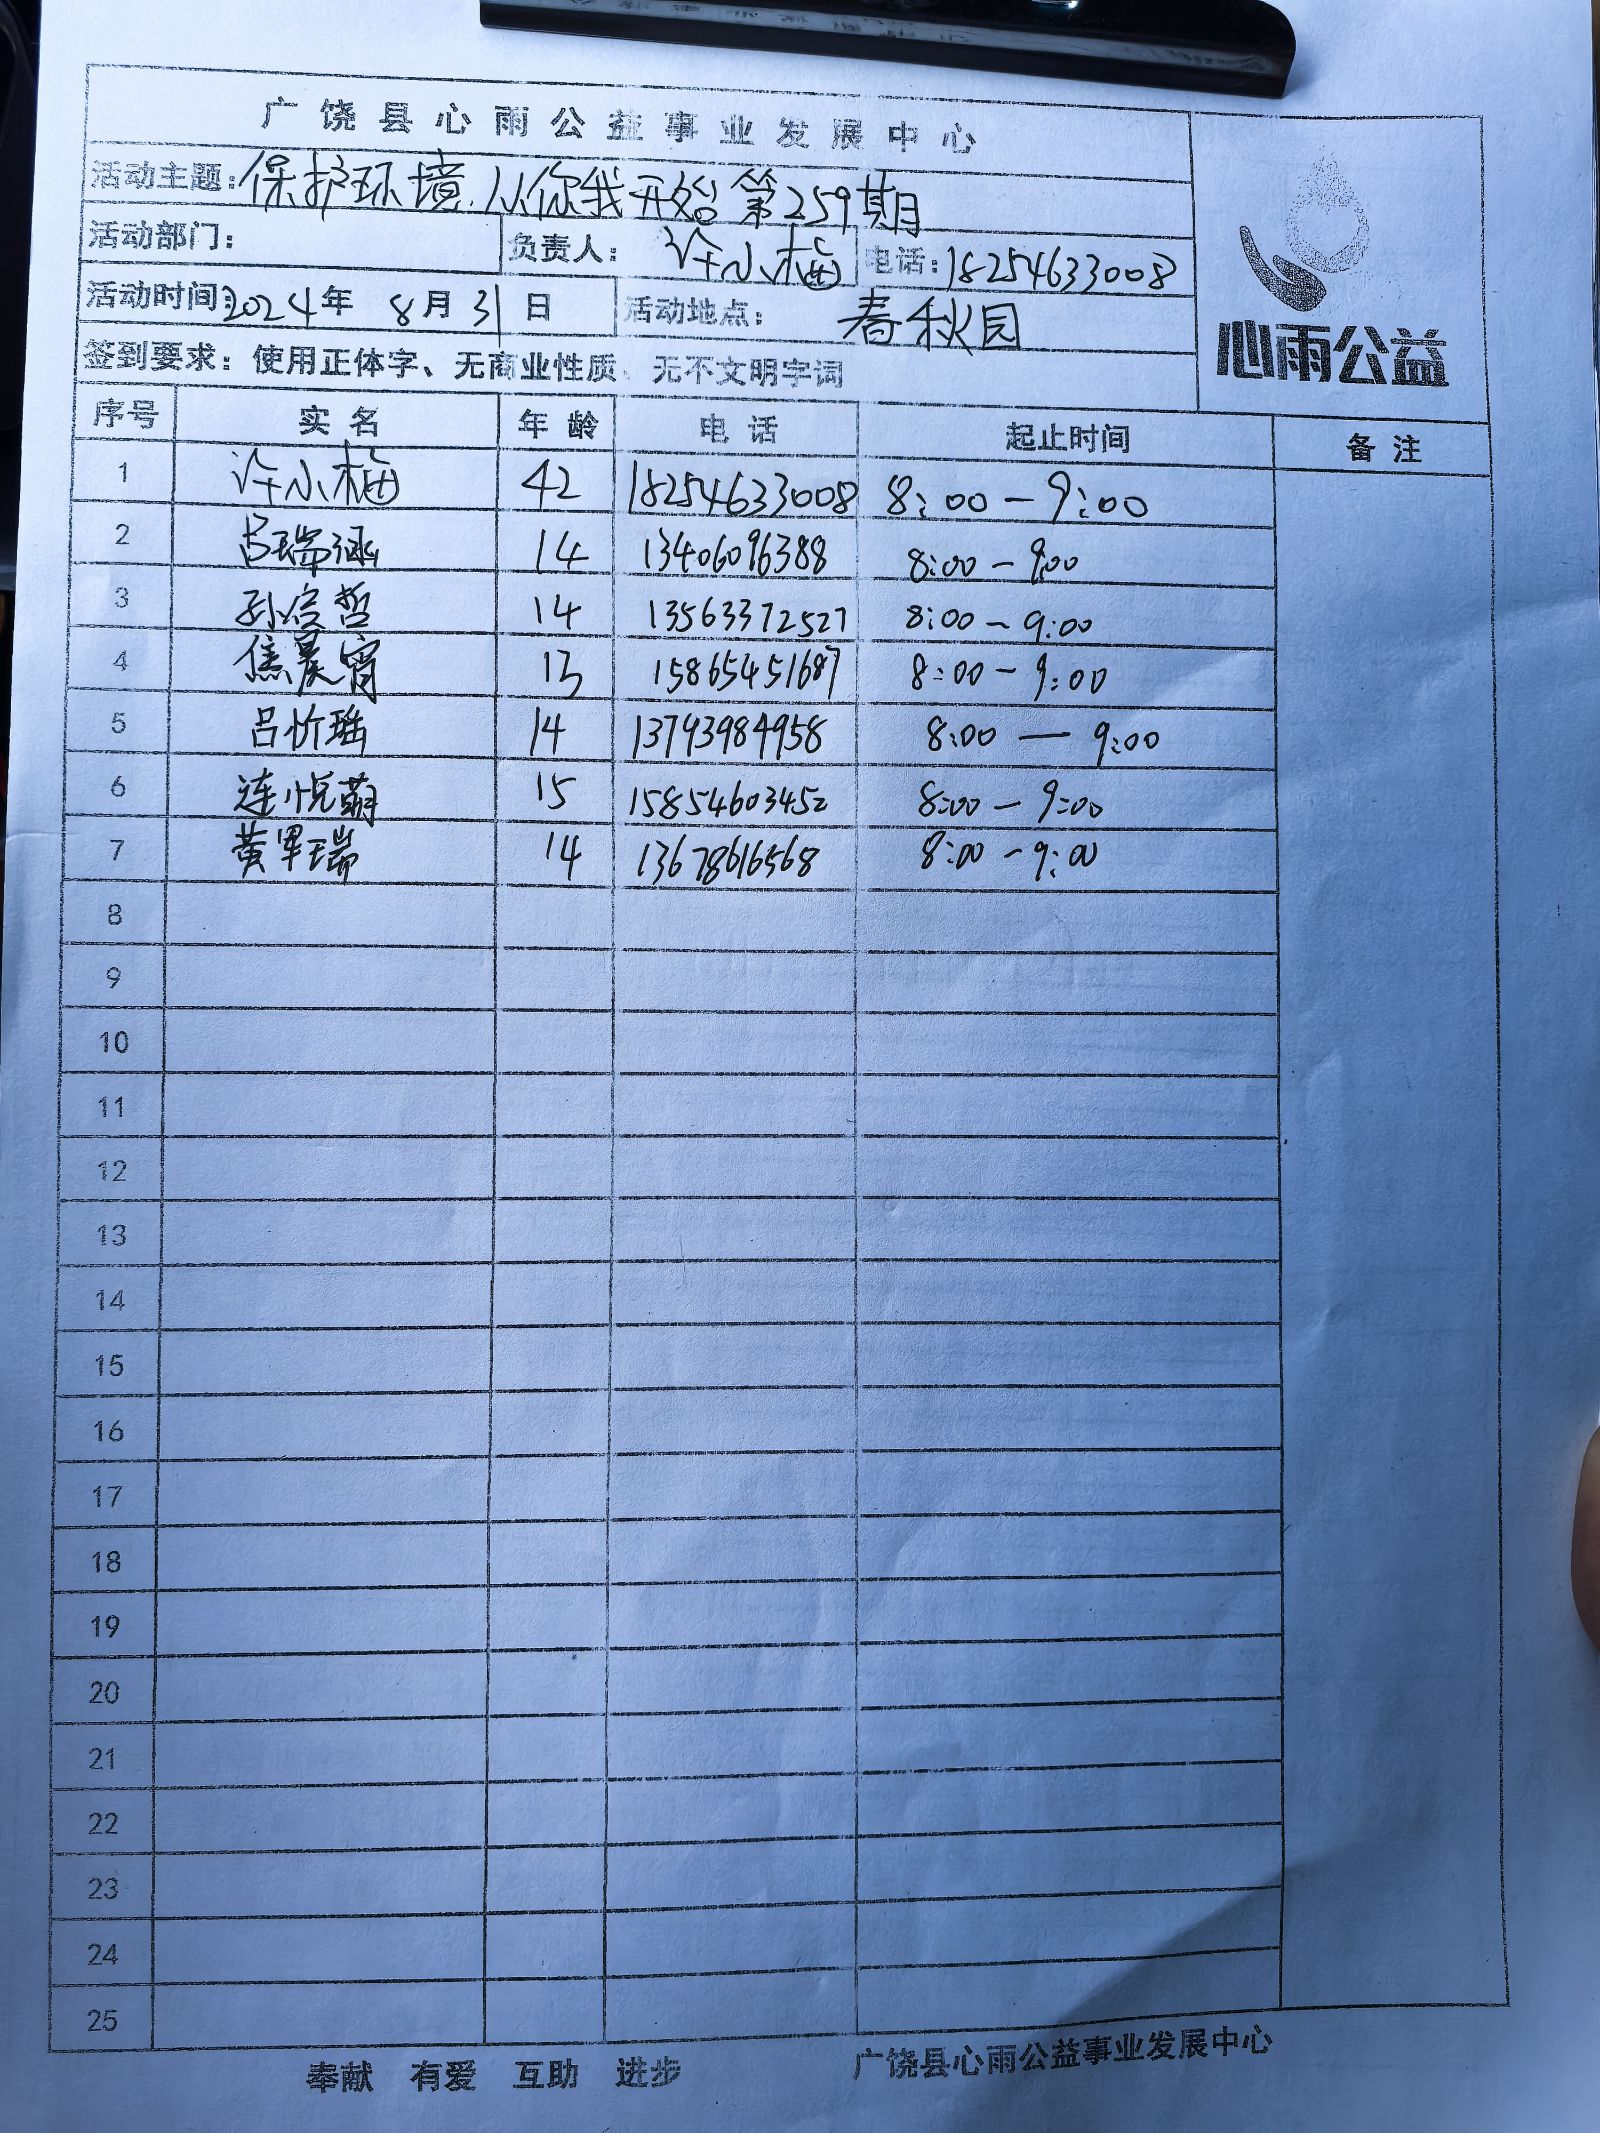 广饶县心雨公益事业发展中心
活动主题：保护环境.从你我开始第259期
活动部门： 负责人：许小梅 电话：18254633008
心雨公益
活动时间：2024年 8月31日 活动地点：春秋园
签到要求：使用正体字、无商业性质、无不文明字词
序号 实名 年龄 电话 起止时间 备注
1 许小梅 42 18254633008 8:00-9:00
2 吕瑞涵 14 13406096388 8:00-9:00
3 孙哲 14 13563372527 8:00-9:00
4 焦晨宵 13 15865451687 8:00-9:00
5 吕忻瑶 14 13793984958 8:00—9:00
6 连悦萌 15 15854603452 8:00-9:00
7 黄瑞 14 13678616568 8:00-9:00
8
9
10
11
12
13
14
15
16
17
18
19
20
21
22
23
24
25
奉献 有爱 互助 进步 广饶县心雨公益事业发展中心